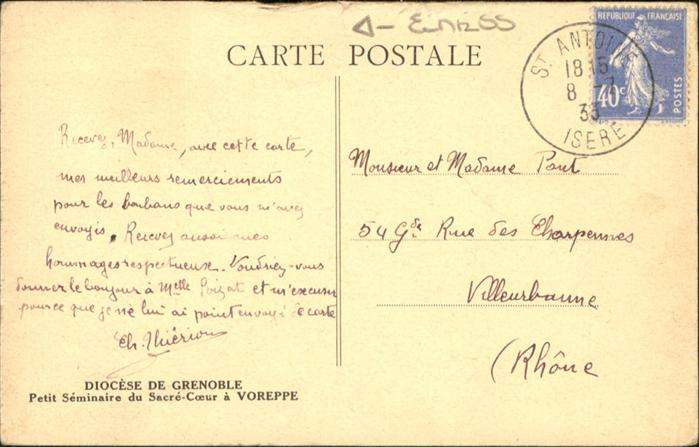 CARTE POSTALE
RÉPUBLIQUE FRANÇAISE
40c
POSTES
ST ANTOINE
18 15
8 -7
33
ISERE
Recevez, Madame, avec cette carte,
mes meilleurs remerciements
pour les bonbons que vous m'avez
envoyés. Recevez aussi mes
hommages respectueux. Voudriez-vous
donner le bonjour à Melle et m'excuser
parce que je ne lui ai point envoyé de carte
Ch. Thiérion
Monsieur et Madame Pont
54 Gde Rue des Charpennes
Villeurbanne
(Rhône
DIOCÈSE DE GRENOBLE
Petit Séminaire du Sacré-Cœur à VOREPPE